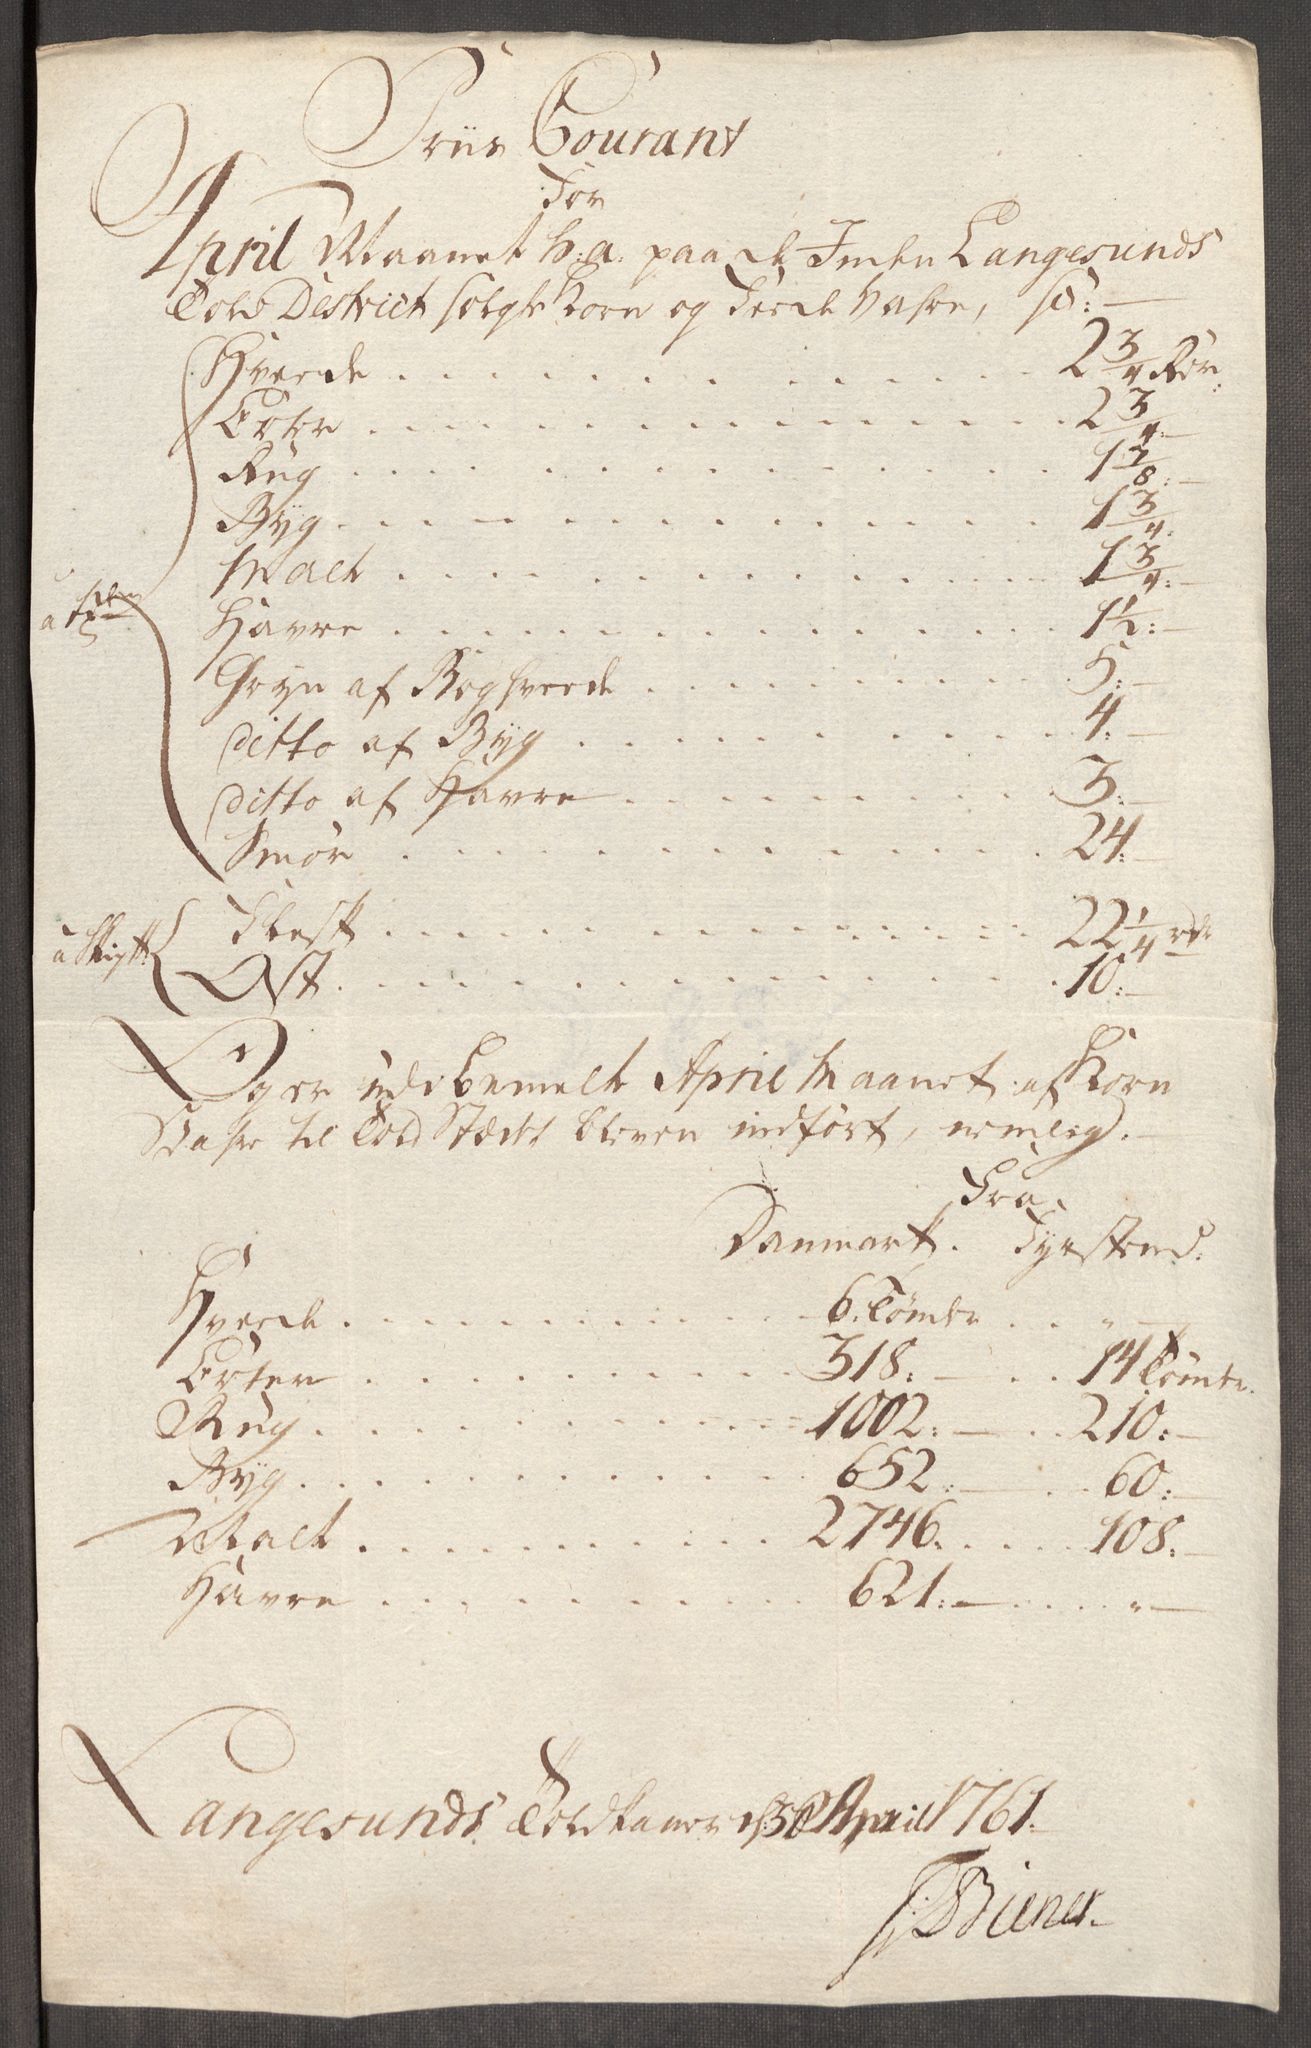 Priis Courant
for
April Maanet h: a: paa de Inden Langesunds
Told District solgte Korn og Feede Vahre,
Hvede . . . 2 3/4 Rdr:
Erter . . . 2 3/4:
Rug . . . 1 7/8:
Byg . . . 1 3/4:
Malt . . . 1 3/4:
a Tønden
Havre . . . 1 1/2:
Gryn af Boghvede . . . 5:
ditto af Byg . . . 4:
ditto af Havre . . . 3:
Smør . . . 24:
Flesk . . . 22 1/4 rdr
a Skip
Ost . . . 10:
Og er udi bemelte April Maanet af Korn
Vahre til Told Stædet bleven indført, nemlig.
Fra
Danmark. Tydskland.
Hvede . . . 6. Tønder . . "
Erter . . . 318: . . 14 Tønder.
Rug . . . 1002: . . 210:
Byg . . . 652: . . 60:
Malt . . . 2746. . . 108:
Havre . . . 621: . . "
Langesunds Toldkamer d: 30 April 1761.
Biener.